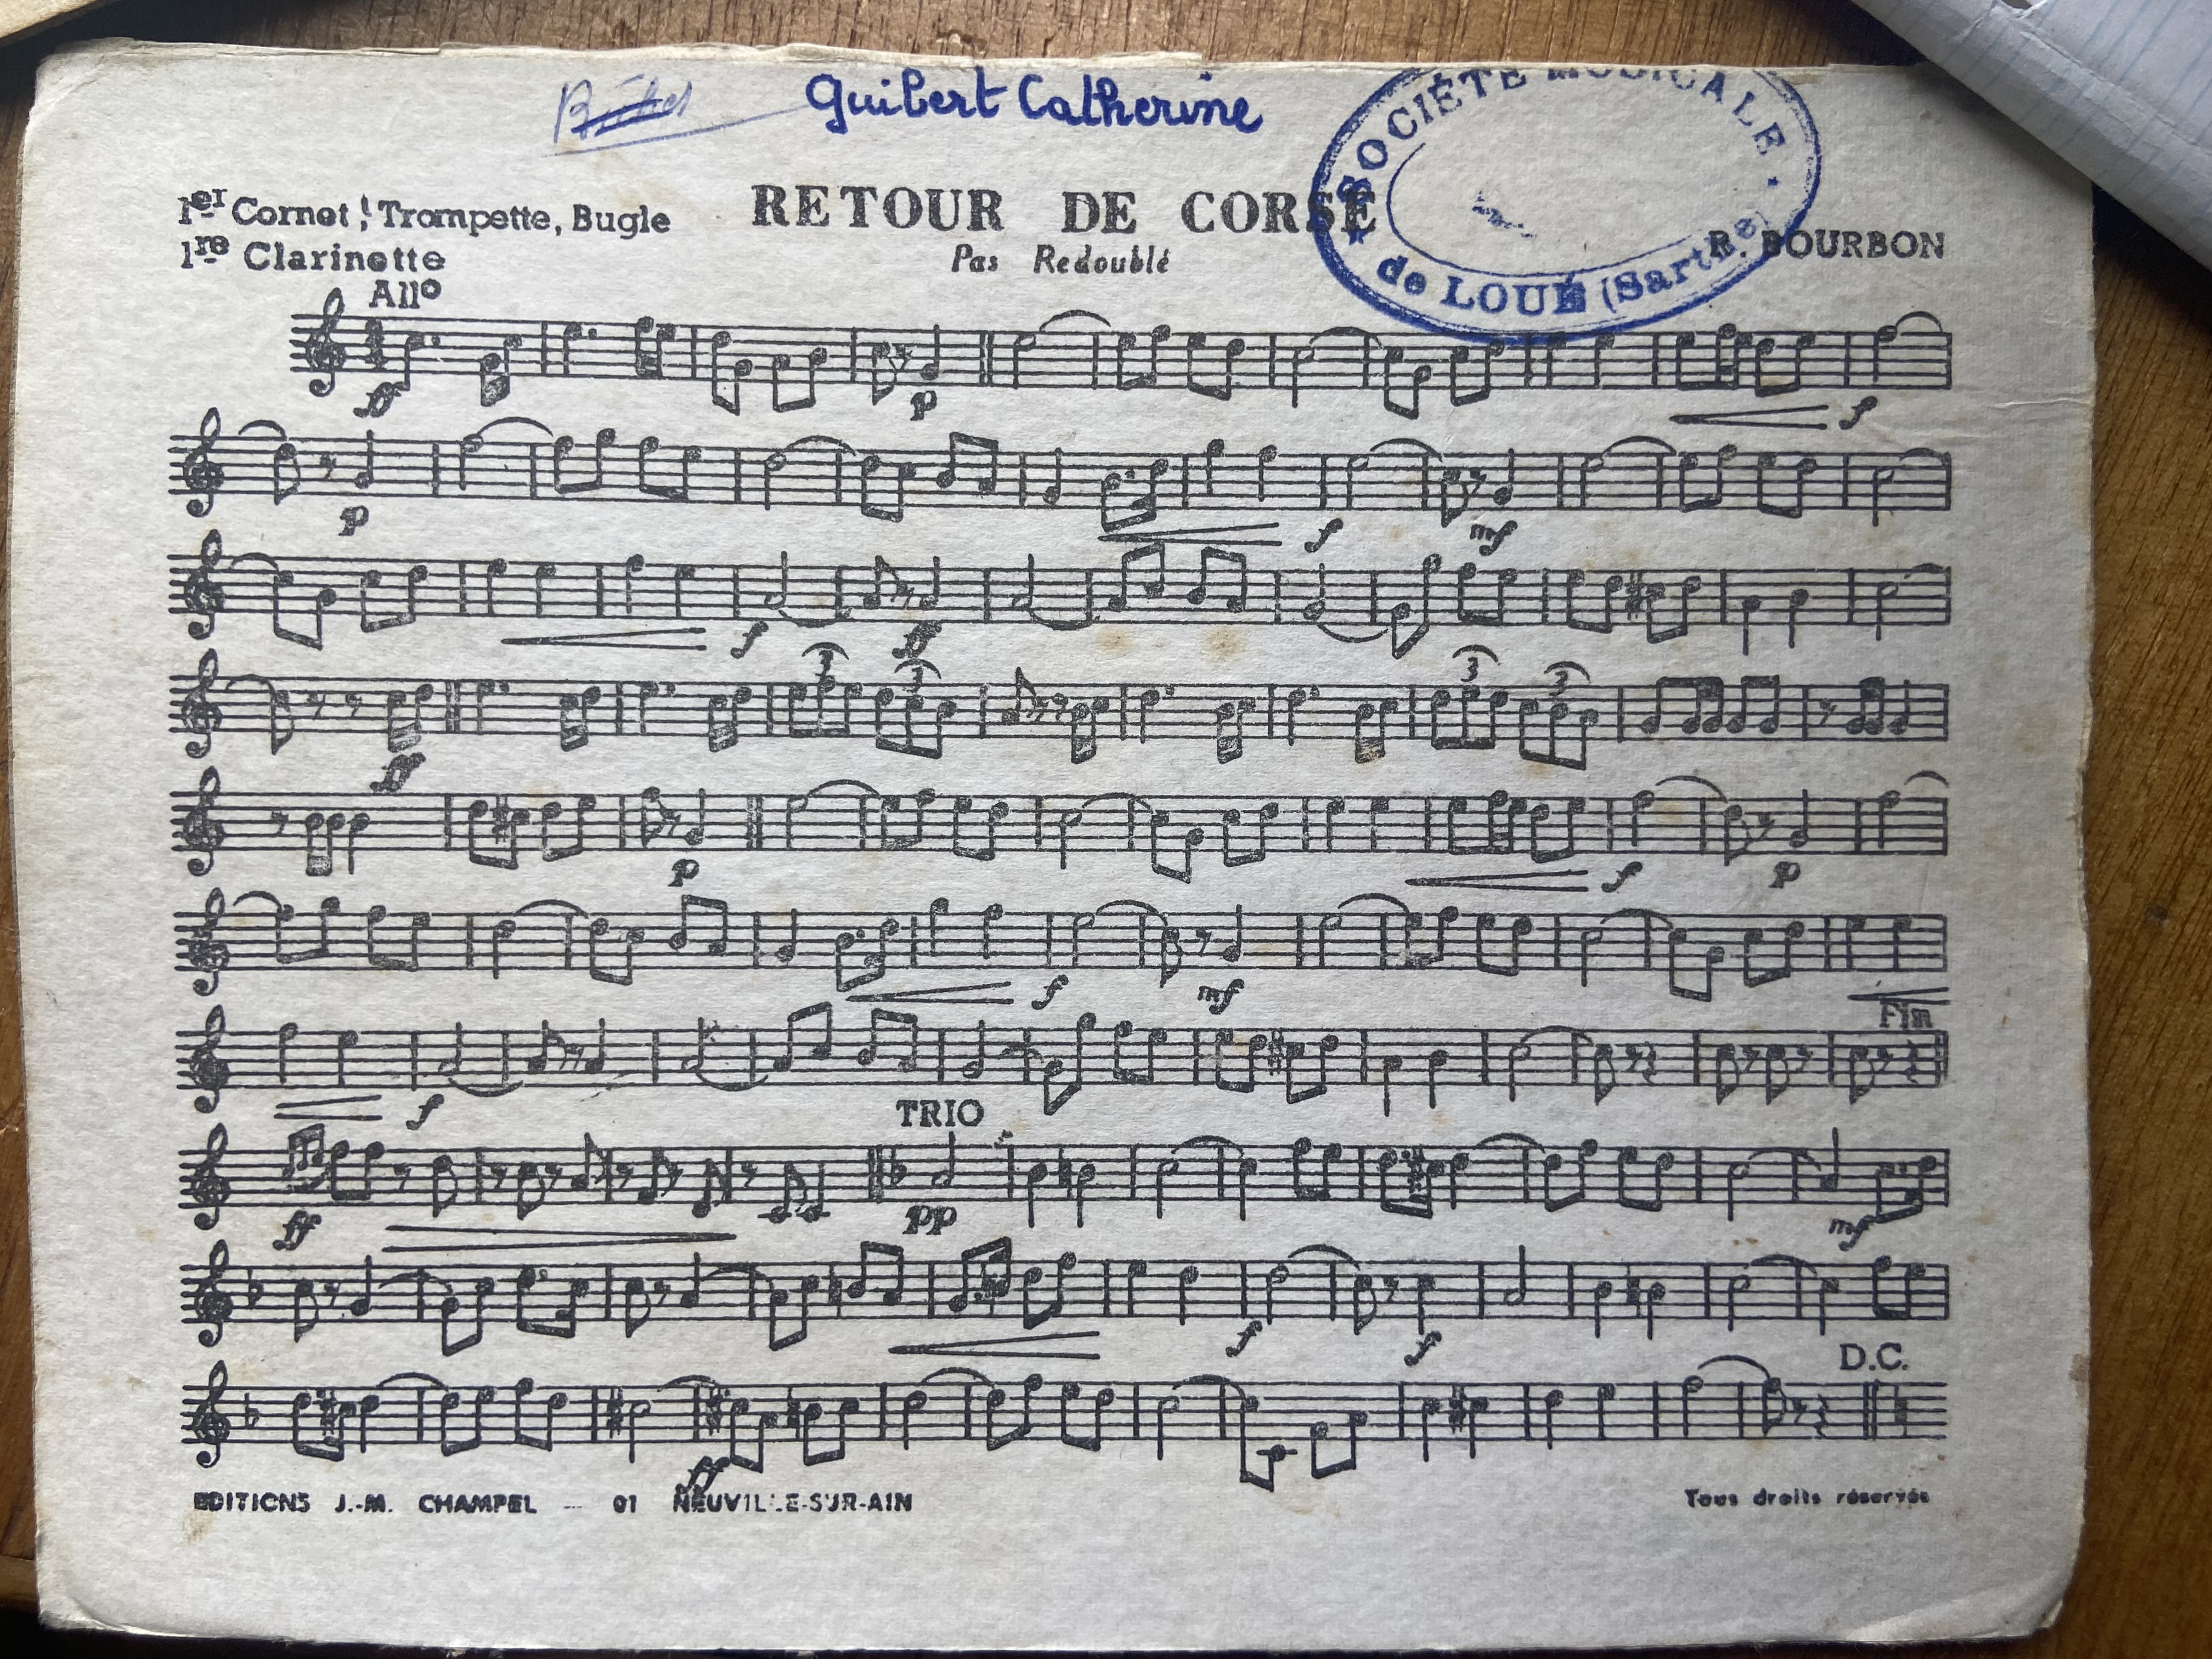 Guibert Catherine
SOCIÉTÉ MUSICALE
de LOUÉ (Sarthe)
1er Cornet, Trompette, Bugle
1re Clarinette
RETOUR DE CORSE
Pas Redoublé
R. BOURBON
Allo
ff
p
f
p
f
mf
f
ff
3
3
3
3
ff
p
f
p
f
mf
Fin
f
TRIO
ff
pp
mf
f
f
D.C.
ff
EDITIONS J.-M. CHAMPEL — 01 NEUVILLE-SUR-AIN
Tous droits réservés